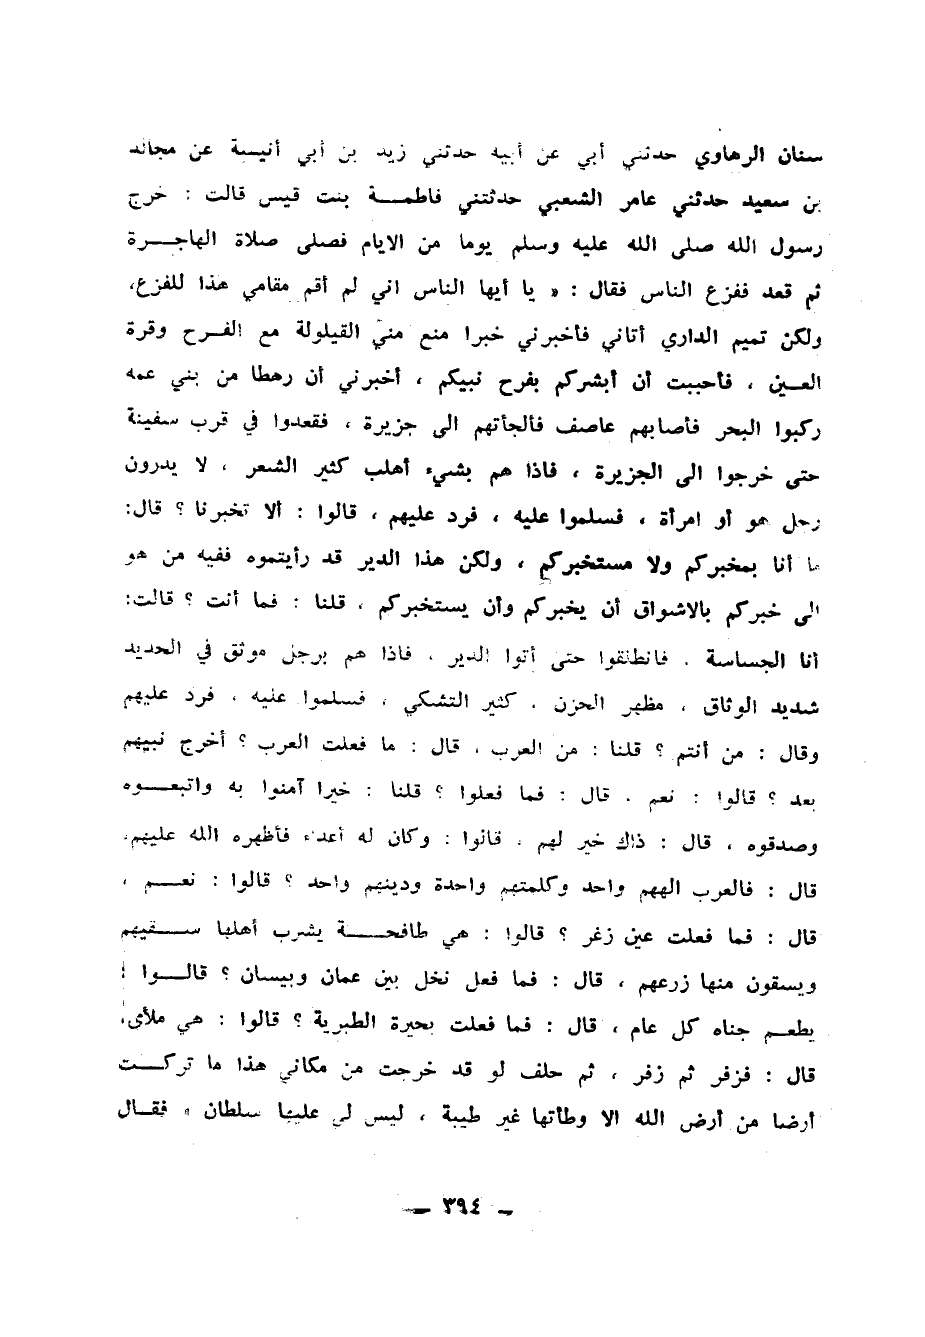 سنان الرهاوي حدثني أبي عن أبيه حدثني زيد بن أبي أنيسة عن مجالد
بن سعيد حدثني عامر الشعبي حدثتني فاطمة بنت قيس قالت : خرج
رسول الله صلى الله عليه وسلم يوما من الايام فصلى صلاة الهاجرة
ثم قعد ففزع الناس فقال : « يا أيها الناس اني لم أقم مقامي هذا للفزع،
ولكن تميم الداري أتاني فأخبرني خبرا منع مني القيلولة مع الفرح وقرة
العين ، فأحببت أن أبشركم بفرح نبيكم ، أخبرني أن رهطا من بني عمه
ركبوا البحر فأصابهم عاصف فألجأتهم الى جزيرة ، فقعدوا في قرب سفينة
حتى خرجوا الى الجزيرة ، فاذا هم بشيء أهلب كثير الشعر ، لا يدرون
رجل هو أو امرأة ، فسلموا عليه ، فرد عليهم ، قالوا : ألا تخبرنا ؟ قال:
ما أنا بمخبركم ولا مستخبركم ، ولكن هذا الدير قد رأيتموه ففيه من هو
الى خبركم بالاشواق أن يخبركم وأن يستخبركم ، قلنا : فما أنت ؟ قالت:
أنا الجساسة . فانطلقوا حتى أتوا الدير ، فاذا هم برجل موثق في الحديد
شديد الوثاق ، مظهر الحزن . كثير التشكي ، فسلموا عليه ، فرد عليهم
وقال : من أنتم ؟ قلنا : من العرب ، قال : ما فعلت العرب ؟ أخرج نبيهم
بعد ؟ قالوا : نعم . قال : فما فعلوا ؟ قلنا : خيرا آمنوا به واتبعوه
وصدقوه ، قال : ذاك خير لهم . قالوا : وكان له أعداء فأظهره الله عليهم.
قال : فالعرب الههم واحد وكلمتهم واحدة ودينهم واحد ؟ قالوا : نعم ،
قال : فما فعلت عين زغر ؟ قالوا : هي طافحة يشرب أهلها سقيهم
ويسقون منها زرعهم ، قال : فما فعل نخل بين عمان وبيسان ؟ قالوا :
يطعم جناه كل عام ، قال : فما فعلت بحيرة الطبرية ؟ قالوا : هي ملأى،
قال : فزفر ثم زفر ، ثم حلف لو قد خرجت من مكاني هذا ما تركت
أرضا من أرض الله الا وطأتها غير طيبة ، ليس لي عليها سلطان » فقال
— ٣٩٤ —